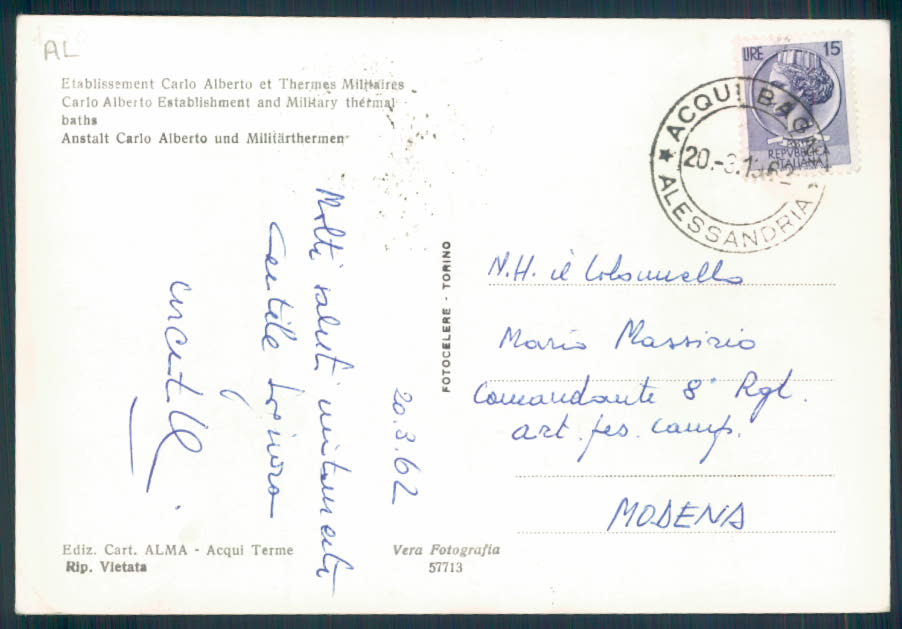 AL
Etablissement Carlo Alberto et Thermes Militaires
Carlo Alberto Establishment and Military thermal
baths
Anstalt Carlo Alberto und Militärthermen
LIRE 15
REPVBBLICA
ITALIANA
ACQUI BAGNI
20.-3.1962
ALESSANDRIA
Molti saluti unitamente
Gentile Signora
20.3.62
FOTOCELERE - TORINO
N.H. il Colonnello
Mario Massirio
Comandante 8° Rgt.
art. pes. camp.
MODENA
Ediz. Cart. ALMA - Acqui Terme
Rip. Vietata
Vera Fotografia
57713